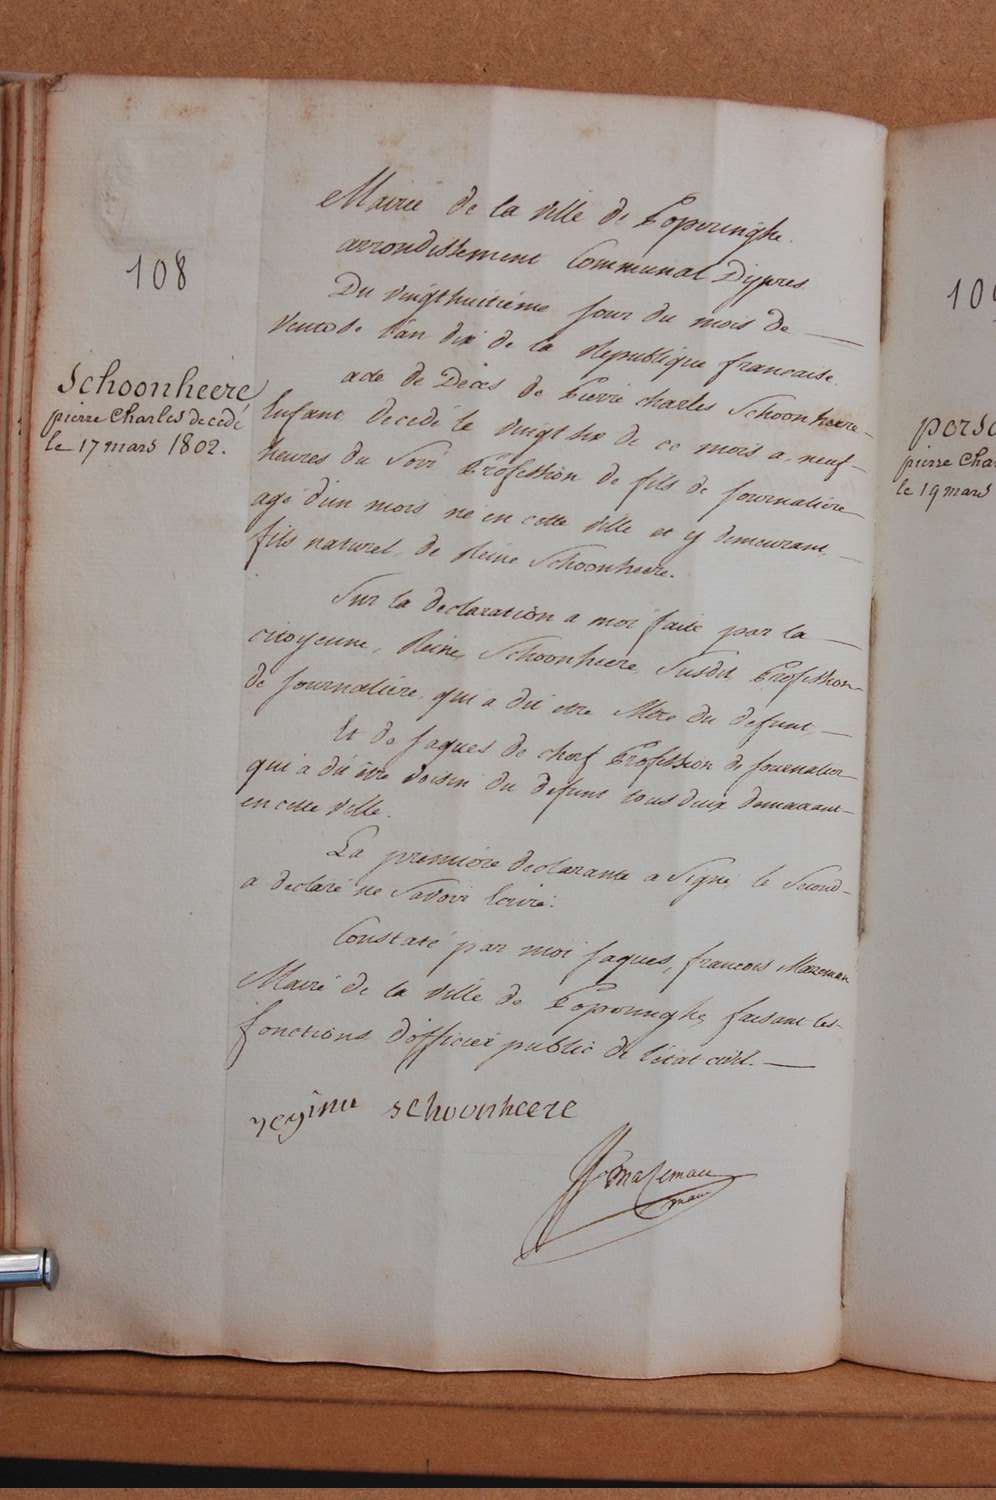 108
Schoonheere
pierre Charles decedé
le 17 mars 1802.
Mairie de la ville de Poperinghe.
arrondissement Communal Dijpres
Du vingthuitieme jour du mois de
ventose l'an dix de la Republique francaise.
acte de Décès de Pierre charles Schoonheere
Enfant decedé le vingt six de ce mois a neuf
heures du Soir Profession de fils de journaliere
agé d'un mois né en cette ville et y demeurant
fils naturel de Reine Schoonheere.
Sur la declaration a moi faite par la
citoyenne, Reine Schoonheere, Susdit Profession
de journaliere, qui a dit etre Mere du defunt,
Et de jaques de chorf Profession de journalier
qui a dit être voisin du defunt tous deux demeurant
en cette ville.
La premiere declarante a Signé le Second
a declaré ne Savoir Ecrire.
Constaté par moi jaques, francois Mazeman
Maire de la ville de Poperinghe, faisant les
fonctions d'officier public de l'état civil.
regina schoonheere
Mazeman
maire
109
perso
pierre Cha
le 19 mars